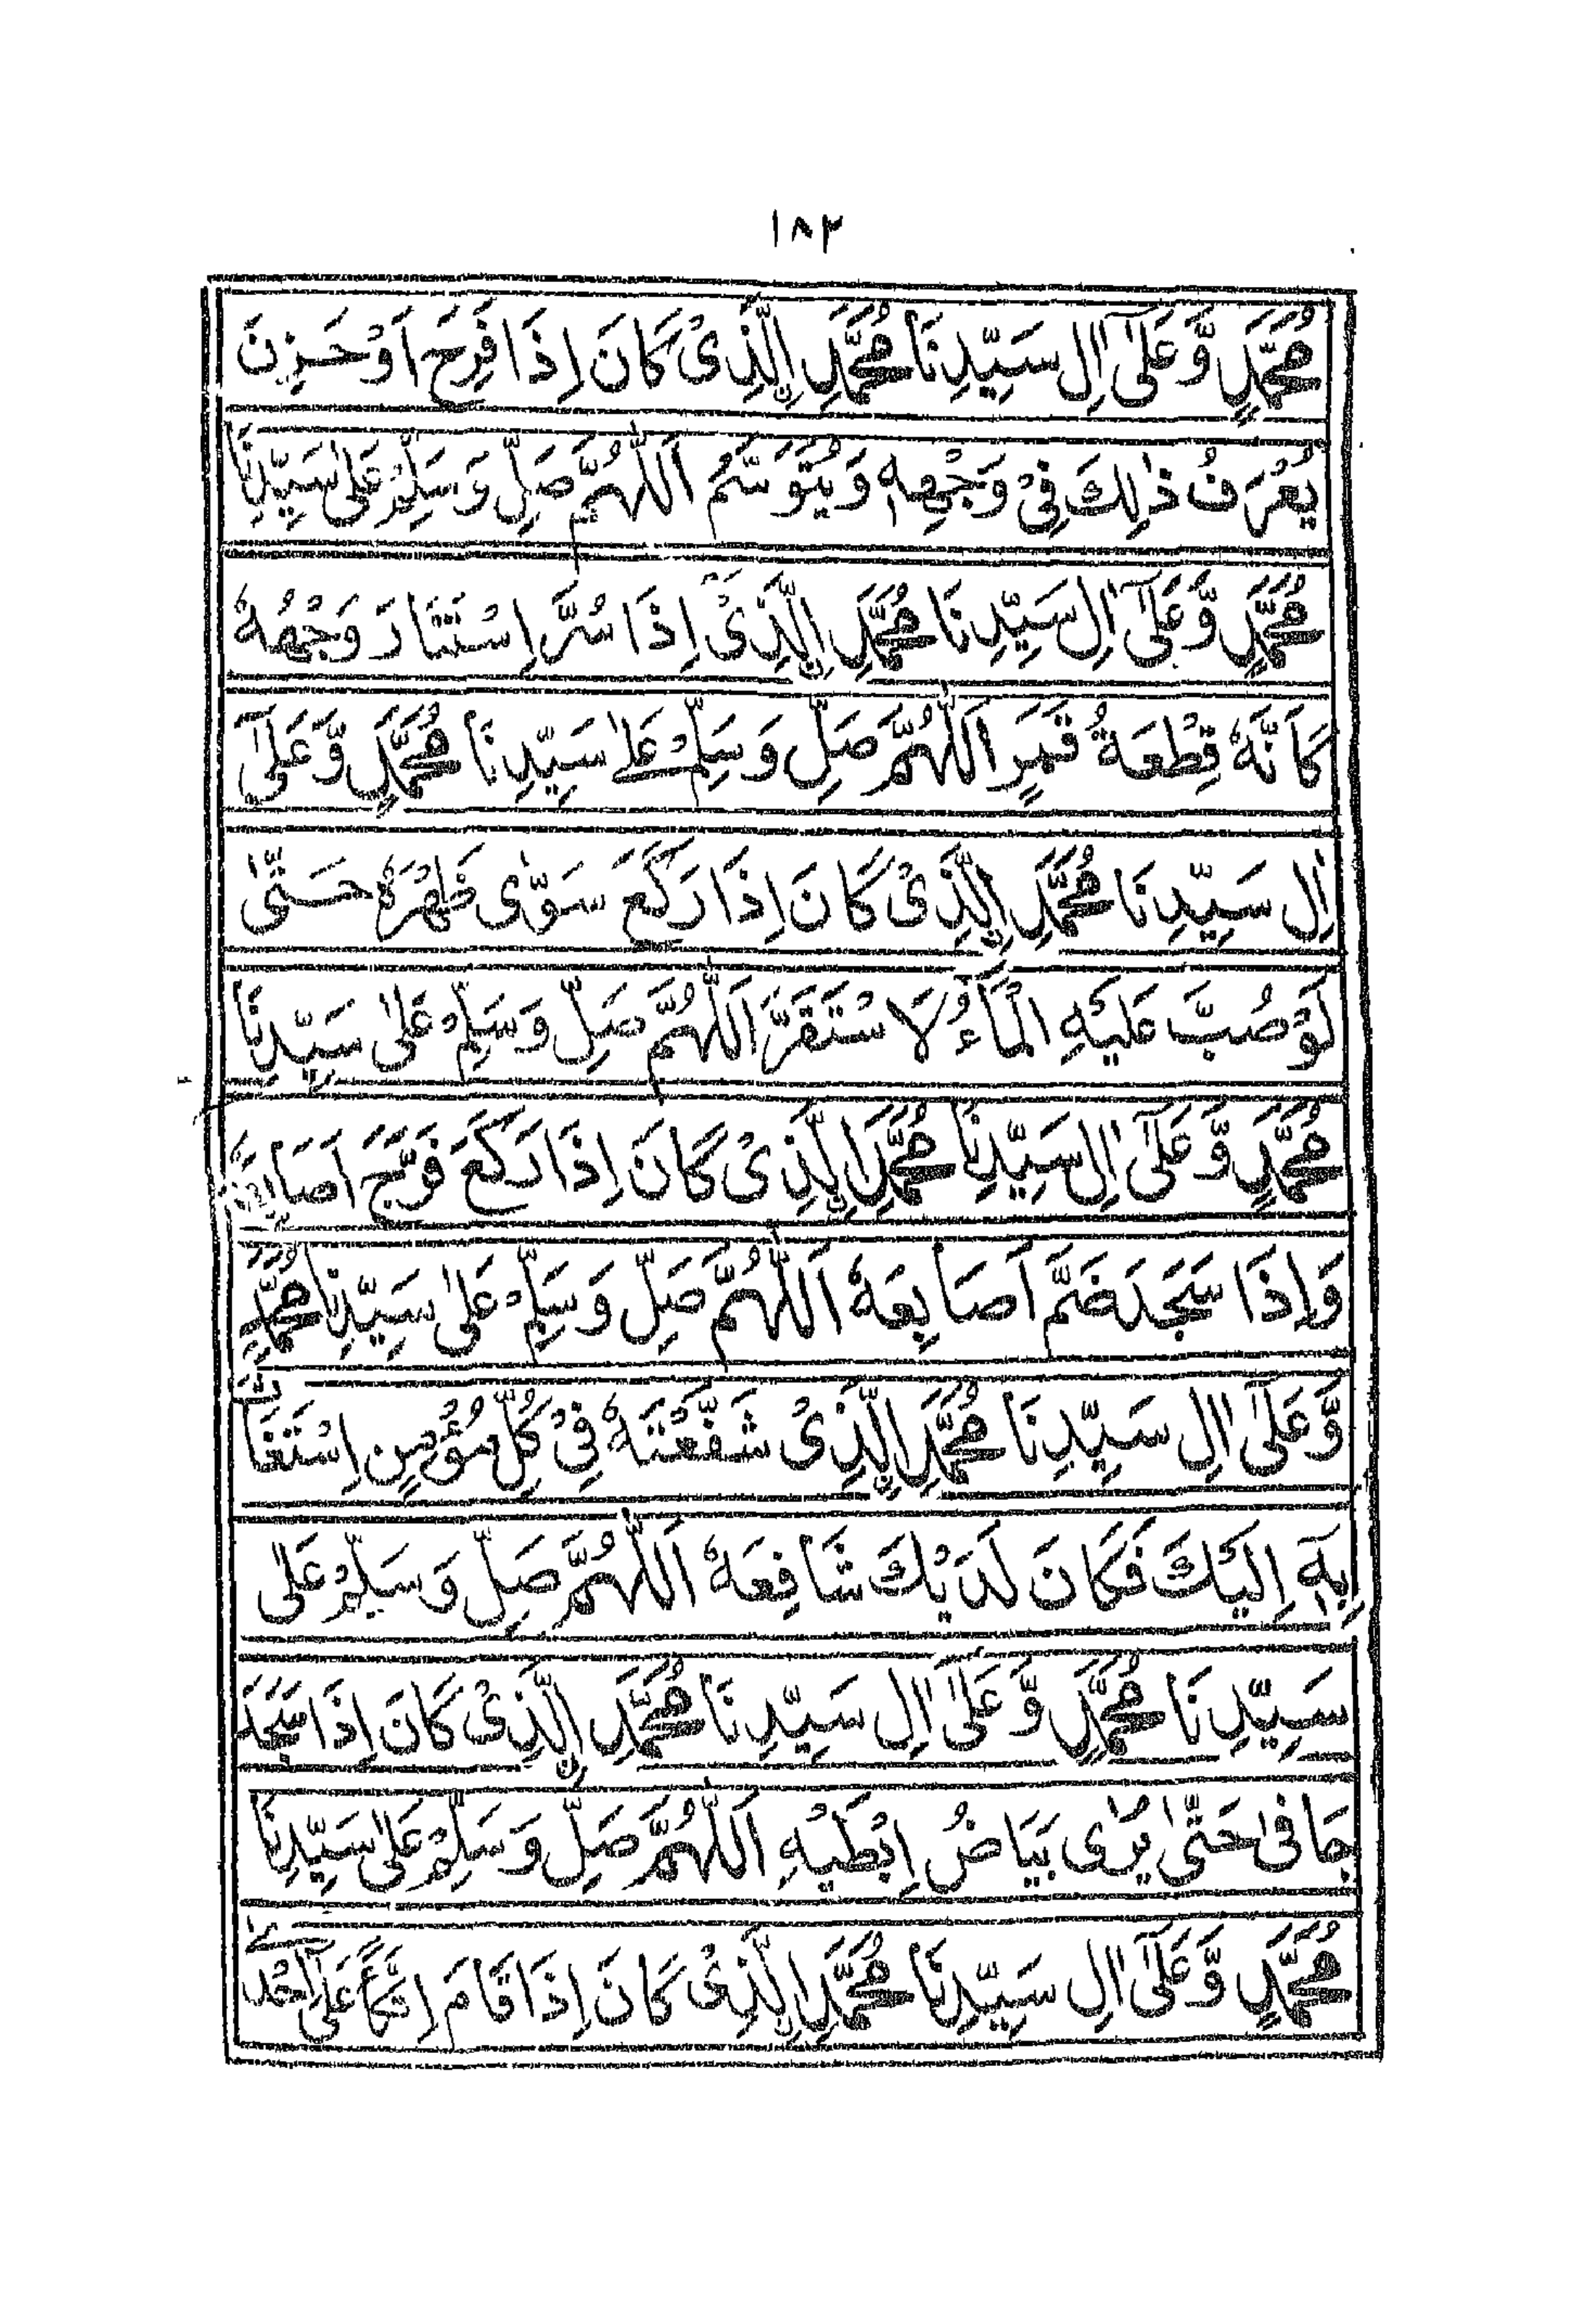 ١٨٢
مُحَمَّدٍ وَّعَلٰٓى اٰلِ سَيِّدِنَا مُحَمَّدِ نِ الَّذِىْ كَانَ اِذَا فَرِحَ اَوْ حَزِنَ
يُعْرَفُ ذٰلِكَ فِىْ وَجْهِهٖ وَيُتَوَسَّمُ اَللّٰهُمَّ صَلِّ وَسَلِّمْ عَلٰى سَيِّدِنَا
مُحَمَّدٍ وَّعَلٰٓى اٰلِ سَيِّدِنَا مُحَمَّدِ نِ الَّذِىْ اِذَا سُرَّ اِسْتَنَارَ وَجْهُهٗ
كَاَنَّهٗ قِطْعَةُ قَمَرٍ اَللّٰهُمَّ صَلِّ وَسَلِّمْ عَلٰى سَيِّدِنَا مُحَمَّدٍ وَّعَلٰٓى
اٰلِ سَيِّدِنَا مُحَمَّدِ نِ الَّذِىْ كَانَ اِذَا رَكَعَ سَوّٰى ظَهْرَهٗ حَتّٰى
لَوْ صُبَّ عَلَيْهِ الْمَآءُ لَاسْتَقَرَّ اَللّٰهُمَّ صَلِّ وَسَلِّمْ عَلٰى سَيِّدِنَا
مُحَمَّدٍ وَّعَلٰٓى اٰلِ سَيِّدِنَا مُحَمَّدِ نِ الَّذِىْ كَانَ اِذَا رَكَعَ فَرَّجَ اَصَابِعَهٗ
وَاِذَا سَجَدَ ضَمَّ اَصَابِعَهٗ اَللّٰهُمَّ صَلِّ وَسَلِّمْ عَلٰى سَيِّدِنَا مُحَمَّدٍ
وَّعَلٰٓى اٰلِ سَيِّدِنَا مُحَمَّدِ نِ الَّذِىْ شَفَّعْتَهٗ فِىْ كُلِّ مُؤْمِنٍ اِسْتَغَاثَ
بِهٖٓ اِلَيْكَ فَكَانَ لَدَيْكَ شَافِعَهٗ اَللّٰهُمَّ صَلِّ وَسَلِّمْ عَلٰى
سَيِّدِنَا مُحَمَّدٍ وَّعَلٰٓى اٰلِ سَيِّدِنَا مُحَمَّدِ نِ الَّذِىْ كَانَ اِذَا سَجَدَ
جَافٰى حَتّٰى يُرٰى بَيَاضُ اِبْطَيْهِ اَللّٰهُمَّ صَلِّ وَسَلِّمْ عَلٰى سَيِّدِنَا
مُحَمَّدٍ وَّعَلٰٓى اٰلِ سَيِّدِنَا مُحَمَّدِ نِ الَّذِىْ كَانَ اِذَا قَامَ اِتَّكَاَ عَلٰٓى اِحْدٰى